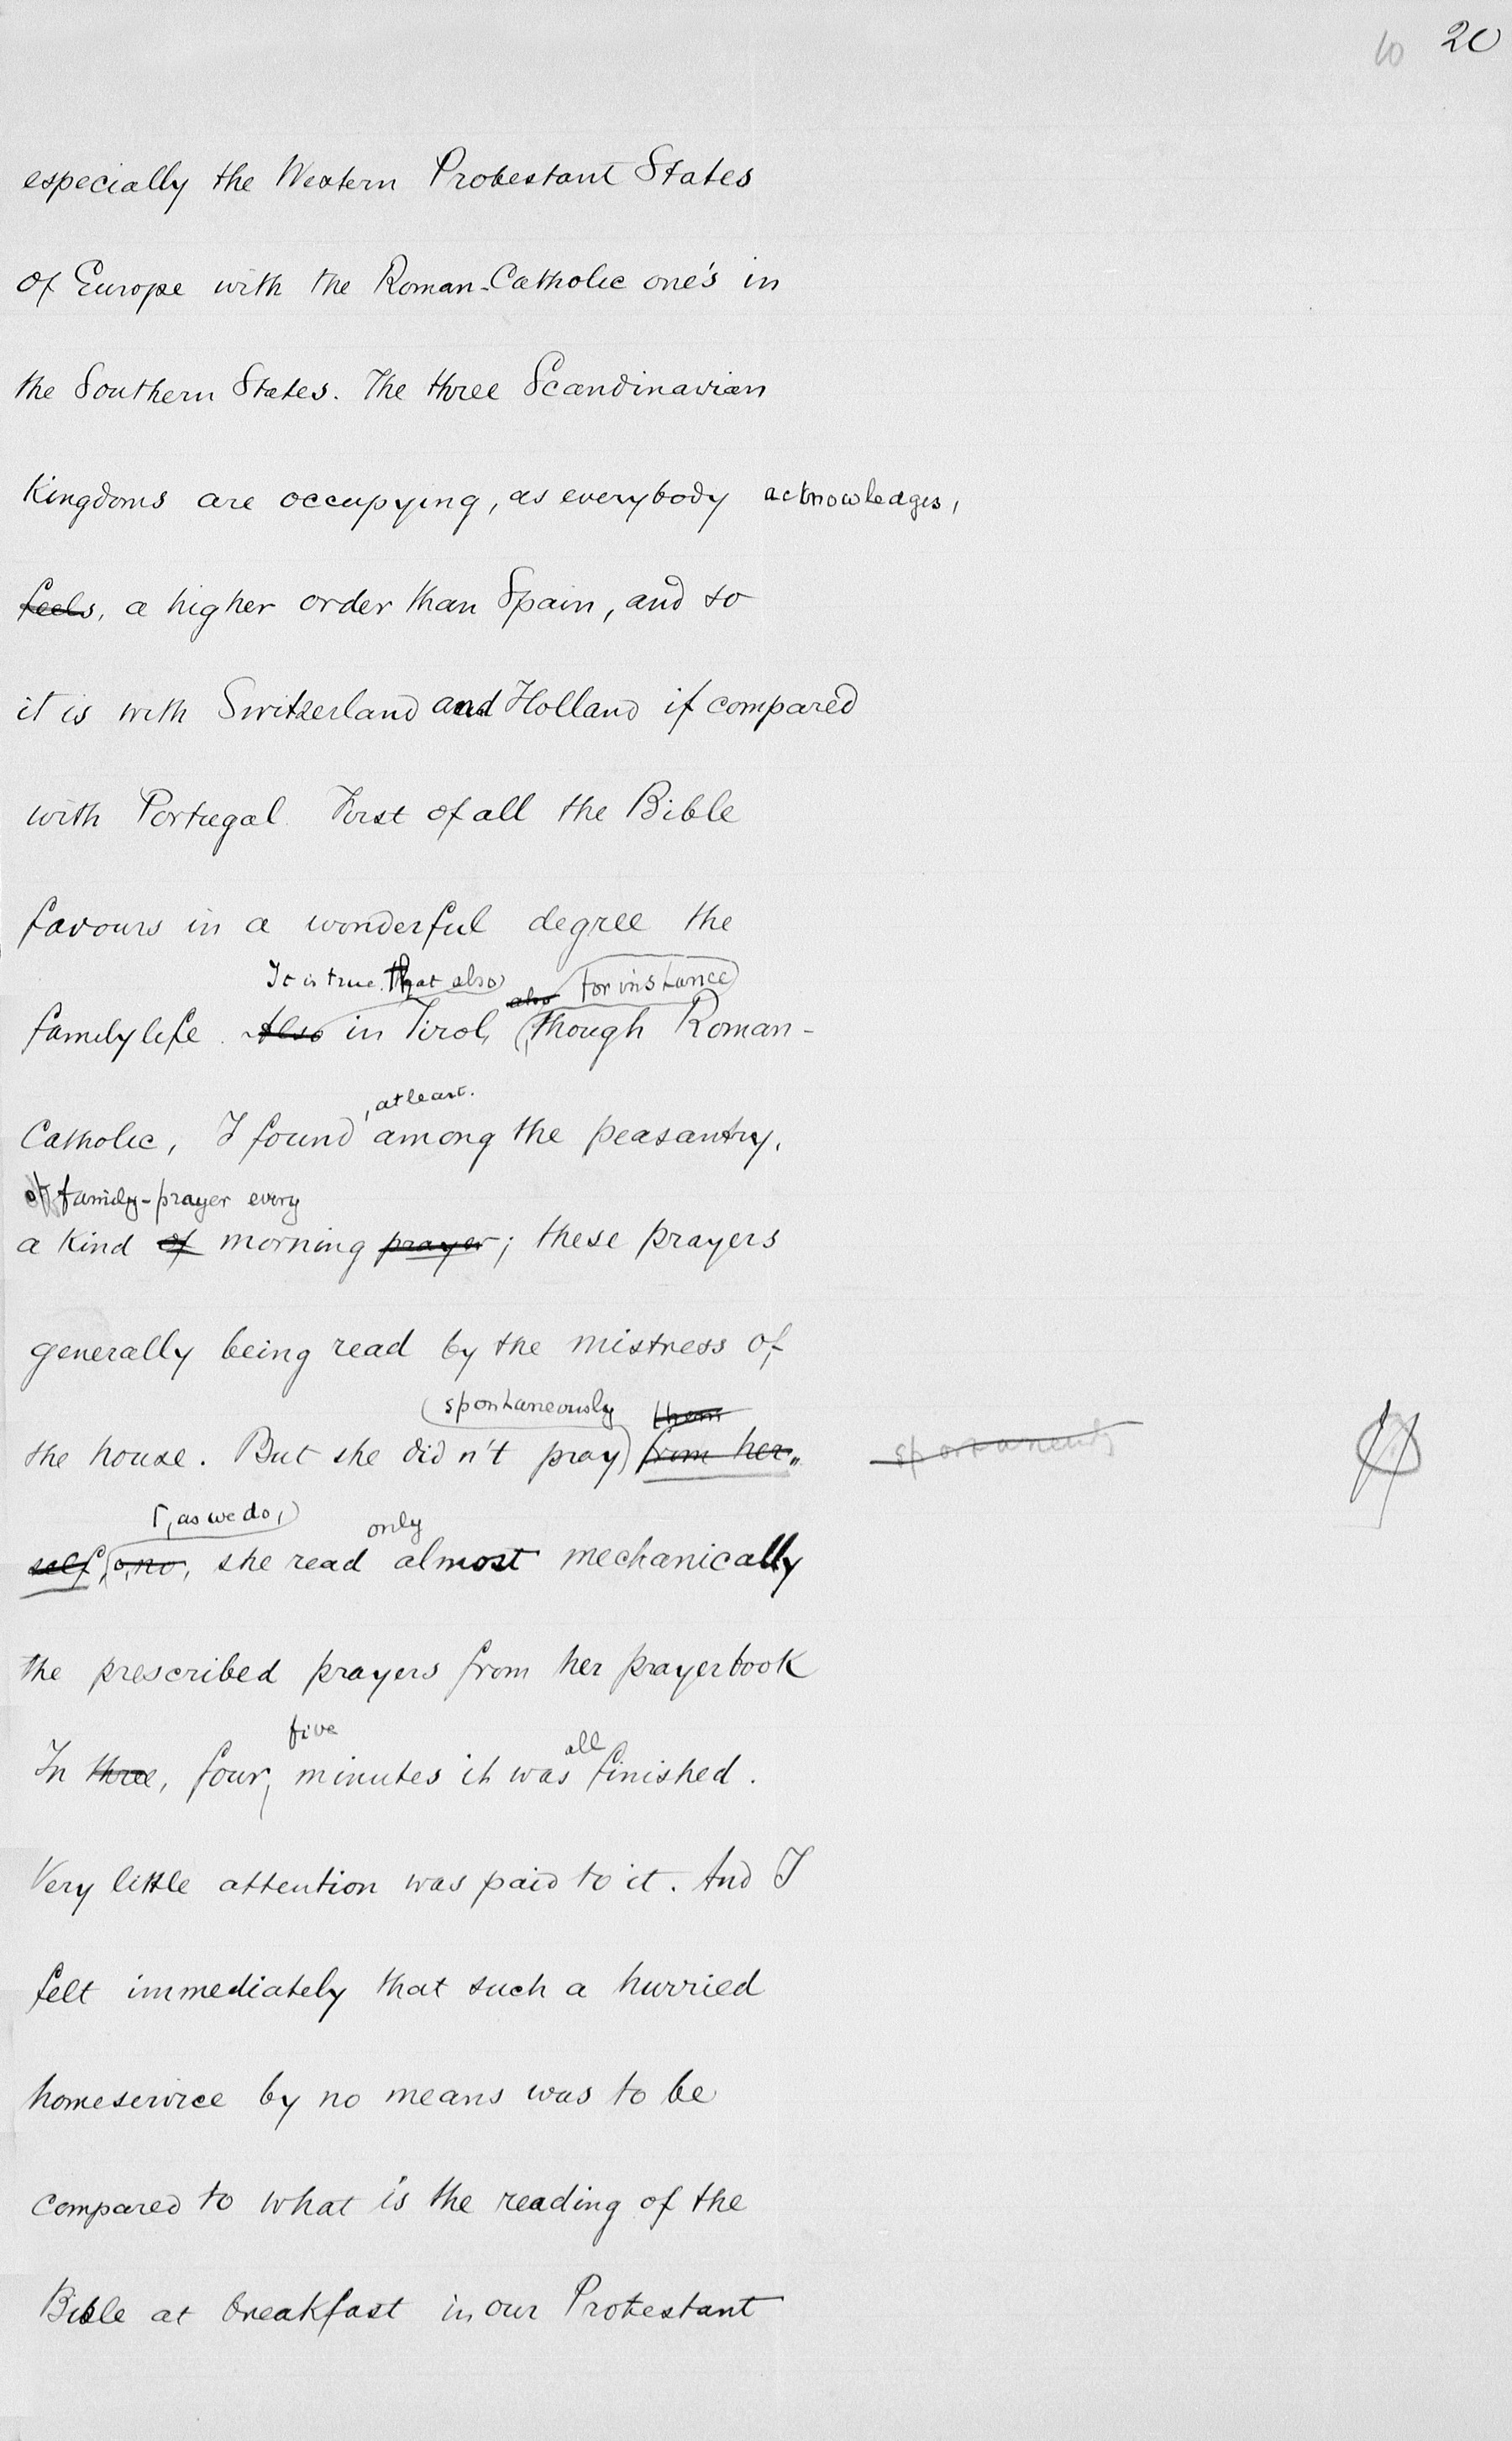 10 20
especially the Western Protestant States
of Europe with the Roman-Catholic one's in
the Southern States. The three Scandinavian
Kingdoms are occupying, as everybody acknowledges,
feels, a higher order than Spain, and so
it is with Switzerland and Holland if compared
with Portugal. First of all the Bible
favours in a wonderful degree the
It is true that also also for instance
family life. Also in Tirol, (though Roman-
, at least.
Catholic, I found among the peasantry,
of family-prayer every
a kind of morning prayer; these prayers
generally being read by the mistress of
spontaneously them
the house. But she did n't pray from her„ spontaneously
, as we do, only
self, o, no, she read almost mechanically
the prescribed prayers from her prayerbook
five all
In three, four, minutes it was finished.
Very little attention was paid to it. And I
felt immediately that such a hurried
homeservice by no means was to be
compared to what is the reading of the
Bible at breakfast in our Protestant